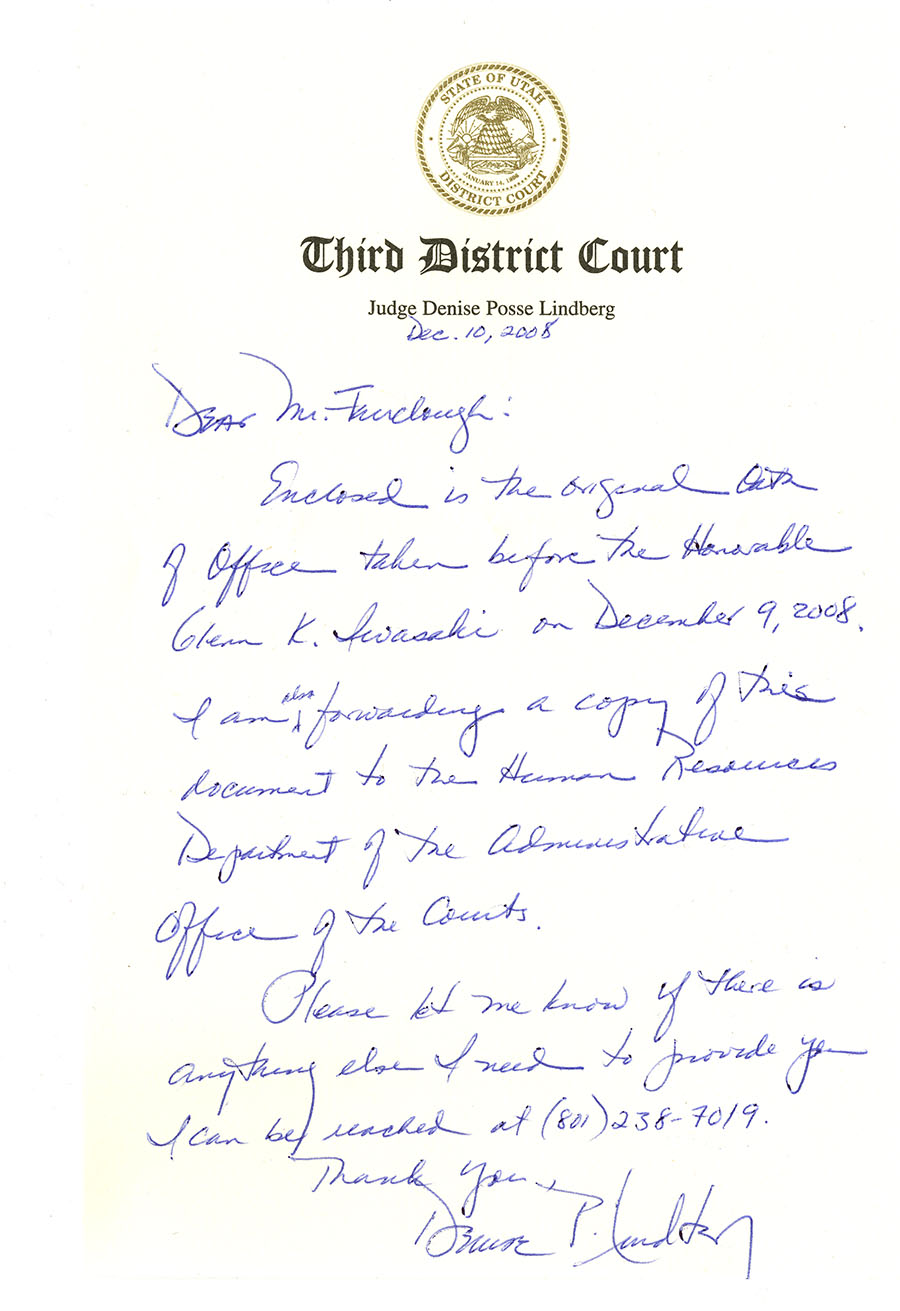 STATE OF UTAH
JANUARY 14, 1896
DISTRICT COURT
Third District Court
Judge Denise Posse Lindberg
Dec. 10, 2008
Dear Mr. Fairclough:
Enclosed is the original Oath
of Office taken before the Honorable
Glenn K. Iwasaki on December 9, 2008.
I am also forwarding a copy of this
document to the Human Resources
Department of the Administrative
Office of the Courts.
Please let me know if there is
anything else I need to provide you
I can be reached at (801)238-7019.
Thank you,
Denise P. Lindberg